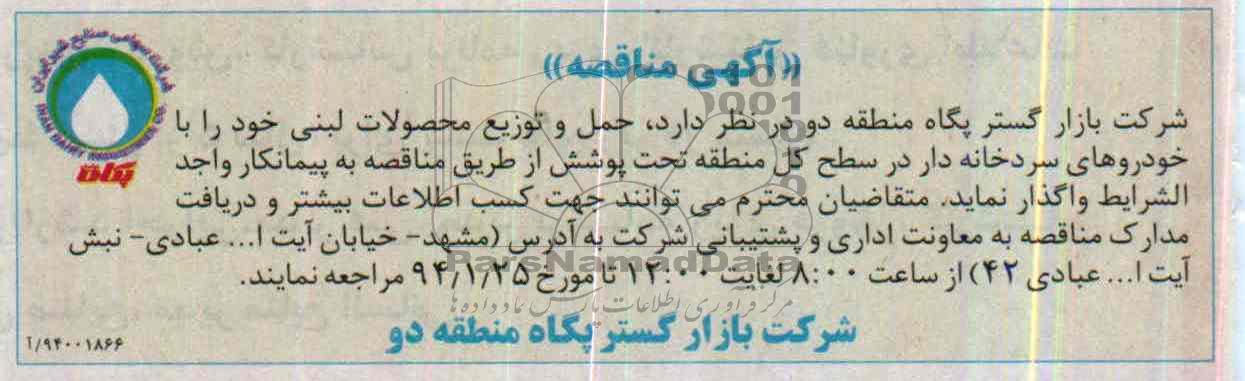 ((آگهی مناقصه))
شرکت بازار گستر پگاه منطقه دو در نظر دارد، حمل و توزیع محصولات لبنی خود را با
خودروهای سردخانه دار در سطح کل منطقه تحت پوشش از طریق مناقصه به پیمانکار واجد
الشرایط واگذار نماید. متقاضیان محترم می توانند جهت کسب اطلاعات بیشتر و دریافت
مدارک مناقصه به معاونت اداری و پشتیبانی شرکت به آدرس (مشهد- خیابان آیت ا... عبادی- نبش
آیت ا... عبادی ۴۲) از ساعت ۸:۰۰ لغایت ۱۲:۰۰ تا مورخ ۹۴/۱/۲۵ مراجعه نمایند.
شرکت بازار گستر پگاه منطقه دو
۹۴۰۰۱۸۶۶/آ
شرکت سهامی صنایع شیر ایران
IRAN DAIRY INDUSTRIES CO.
پگاه
ParsNamadData
مرکز فرآوری اطلاعات پارس نماد داده ها